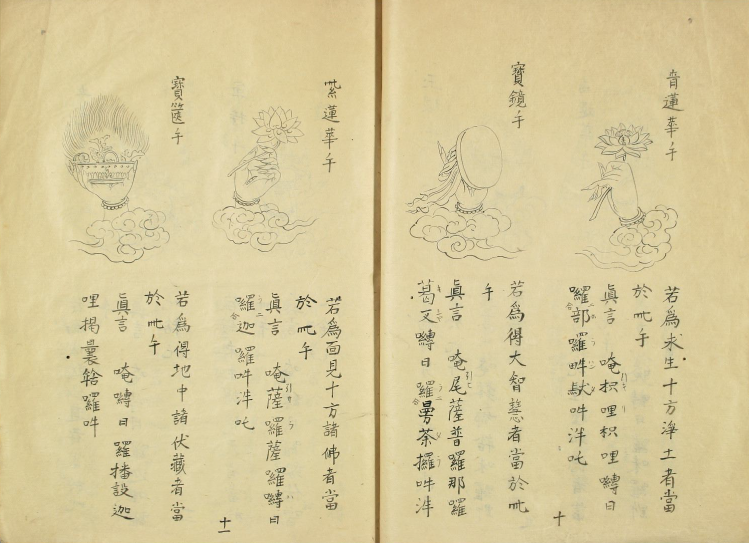 青蓮華手
若為求生十方淨土者當
於此手
真言　唵枳哩枳哩嚩日
羅部羅畔馱吽泮吒
寶鏡手
若為得大智慧者當於此
手
真言　唵尾薩普羅那羅
葛叉嚩日羅曼荼攞吽泮
十
紫蓮華手
若為面見十方諸佛者當
於此手
真言　唵薩羅薩羅嚩日
羅迦羅吽泮吒
寶篋手
若為得地中諸伏藏者當
於此手
真言　唵嚩日羅播設迦
哩揭曩䤈羅吽
十一